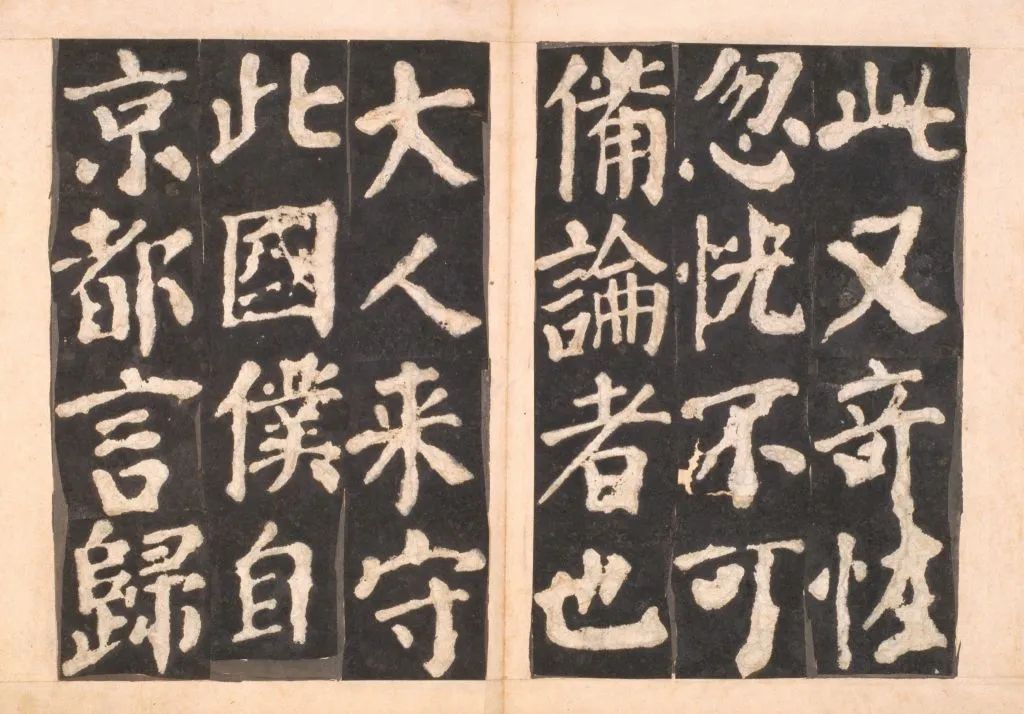 此又竒怪
忽恍不可
備論者也
大人来守
此國僕自
京都言歸